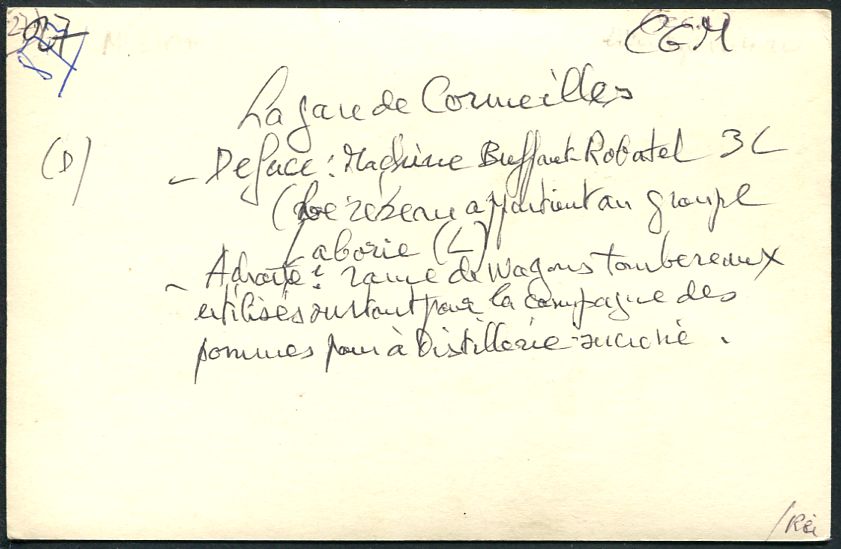 27
827
CGM
La gare de Cormeilles
(D)
- De face : Machine Buffaut-Robatel 3L
(Le réseau appartient au groupe
Laborie (L)
- A droite : rame de wagons tombereaux
utilisés surtout pour la campagne des
pommes pour à Distillerie-sucrerie.